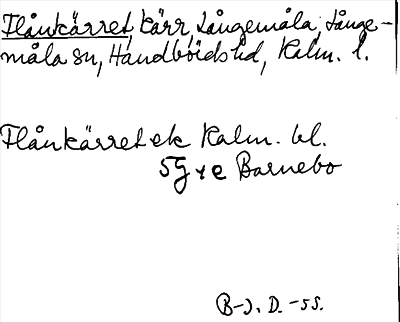 Flånkärret, kärr, Långemåla, Långe-
måla sn, Handbörds hd, Kalm. l.
Flånkärret ek Kalm. bl.
5G x e Barnebo
B-J. D. -55.